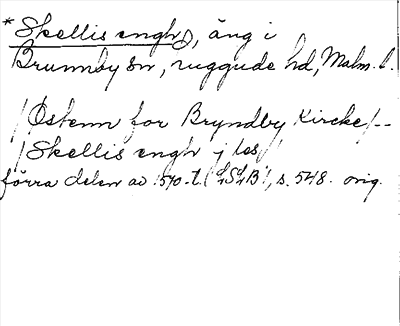 * Skellis engh, äng i
Brunnby sn, Luggude hd, Malm. l.
/Østenn for Bryndby Kircke/--
/Skellis engh j les/
förra delen av 1540-t. ( ), s. 548. orig.